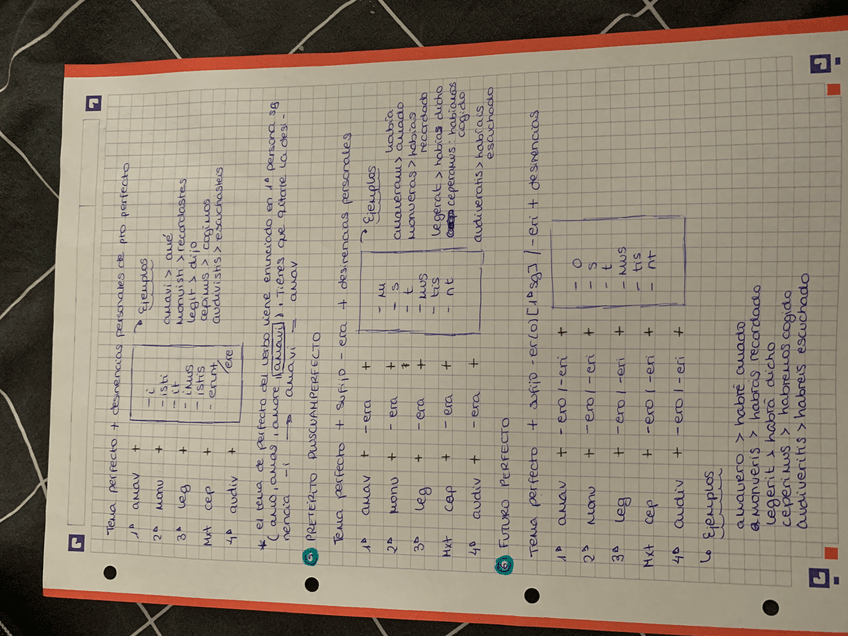 Tema perfecto + desinencias personales de pto perfecto
1ª amav +
2ª monu +
3ª leg +
Mxt cep +
4ª audiv +
- i
- isti
- it
- imus
- istis
- erunt
/ere
→ Ejemplos
amavi > amé
monuisti > recordastes
legit > dijo
cepimus > cogimos
audivistis > escuchasteis
* el tema de perfecto del verbo viene enunciado en 1ª persona sg
(amo, amas, amare, amavi). Tienes que quitarle la desi-
nencia -i → amavi = amav
5 PRETÉRITO PLUSCUAMPERFECTO
Tema perfecto + sufijo -era + desinencias personales
1ª amav + -era +
2ª monu + -era +
3ª leg + -era +
Mxt cep + -era +
4ª audiv + -era +
- m
- s
- t
- mus
- tis
- nt
→ Ejemplos
amaveram > había amado
monueras > habías recordado
legerat > habías dicho
ceperamus: habíamos cogido
audiveratis > habíais escuchado
6 FUTURO PERFECTO
Tema perfecto + sufijo -er(o) [1ª sg] / -eri + desinencias
1ª amav + -ero / -eri +
2ª monu + -ero / -eri +
3ª leg + -ero / -eri +
Mxt cep + -ero / -eri +
4ª audiv + -ero / -eri +
- o
- s
- t
- mus
- tis
- nt
↳ Ejemplos
amavero > habré amado
monueris > habrás recordado
legerit > habrá dicho
ceperimus > habremos cogido
audiveritis > habréis escuchado